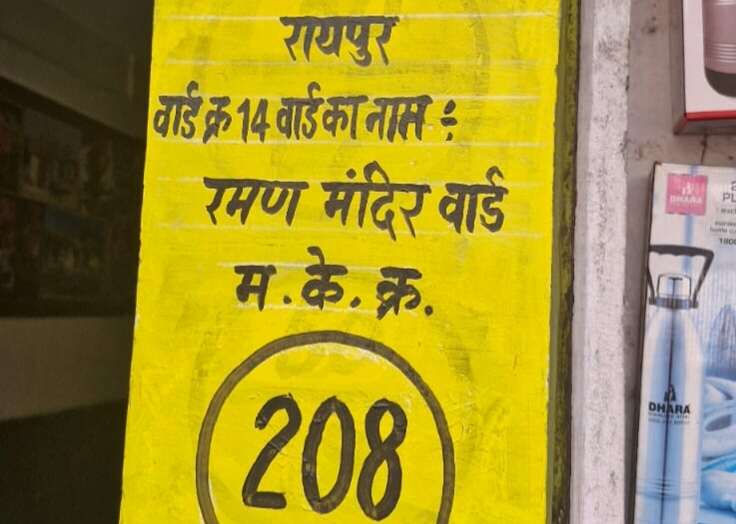 रायपुर
वार्ड क्र 14 वार्ड का नाम :
रमण मंदिर वार्ड
म . के . क्र .
208
DHARA
PL
DHARA